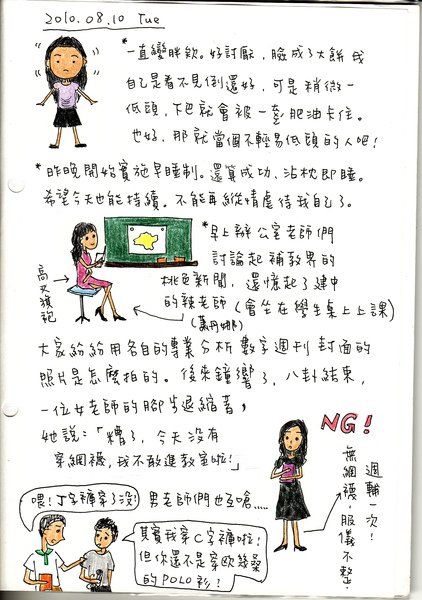 2010.08.10 Tue
*一直變胖欸。好討厭,臉成了大餅,我
自己是看不見倒還好,可是稍微一
低頭,下巴就會被一套肥油卡住。
也好,那就當個不輕易低頭的人吧!
*昨晚開始實施早睡制。還算成功、沾枕即睡。
希望今天也能持續。不能再縱情虐待我自己了。
*早上辦公室老師們
討論起補教界的
桃色新聞,還憶起了建中
的辣老師(會坐在學生桌上上課)
(蕭丹娜)
高叉旗袍
大家紛紛用各自的專業分析數字週刊封面的
照片是怎麼拍的。後來鐘響了,八卦結束,
一位女老師的腳步退縮著,
她說:「糟了,今天沒有
穿網襪,我不敢進教室啦!」
NG!
週輔一次!
無網襪,服儀不整!
喂!丁字褲穿了沒!
男老師們也互嗆.....
其實我穿C字褲啦!
但你還是穿歐幾桑
的POLO衫?